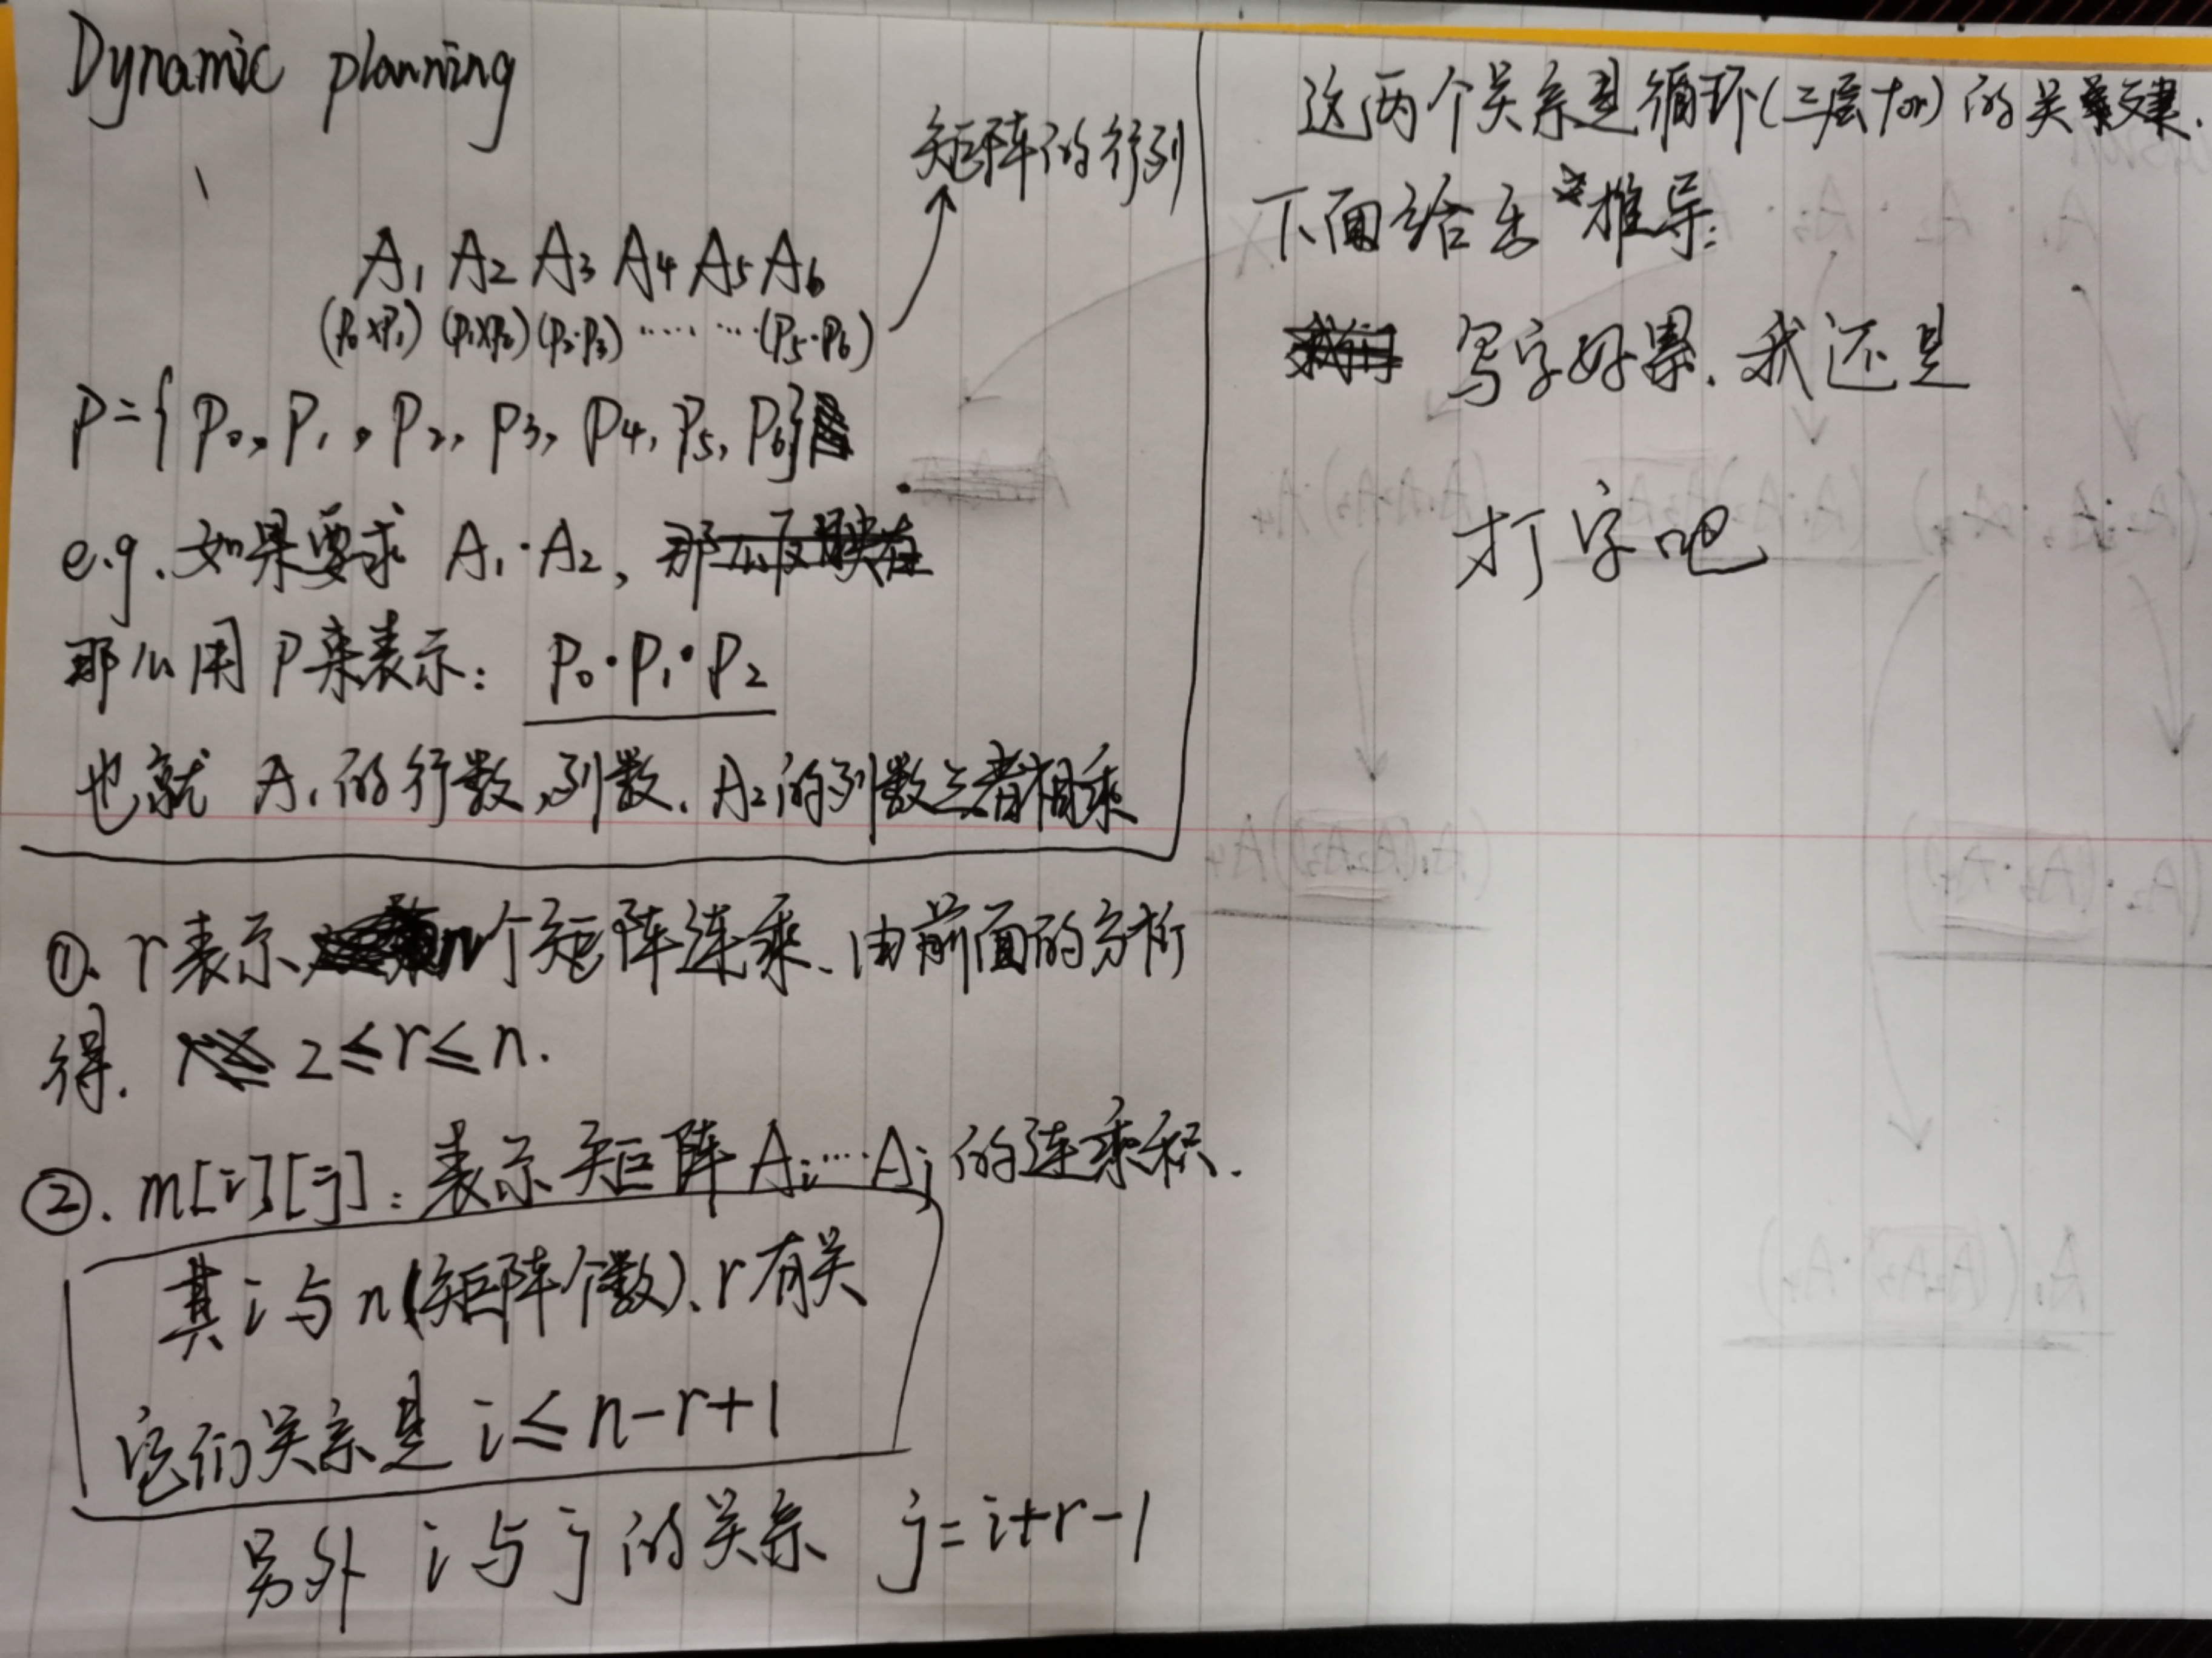 Dynamic planning
矩阵的行列
A₁ A₂ A₃ A₄ A₅ A₆
(P₀×P₁) (P₁×P₂) (P₂·P₃) ········ (P₅·P₆)
P={P₀, P₁, P₂, P₃, P₄, P₅, P₆}
e.g. 如果要求 A₁·A₂,
那么用P来表示: P₀·P₁·P₂
也就 A₁的行数、列数、A₂的列数三者相乘
①. r表示 n个矩阵连乘、由前面的分析
得. 2≤r≤n.
②. m[i][j]: 表示矩阵Aᵢ…Aⱼ的连乘积.
其i与n(矩阵个数)、r有关
它们关系是 i≤n-r+1
另外 i与j的关系 j=i+r-1
这两个关系是循环(三层for)的关键.
下面给出推导:
写字好累. 我还是
打字吧